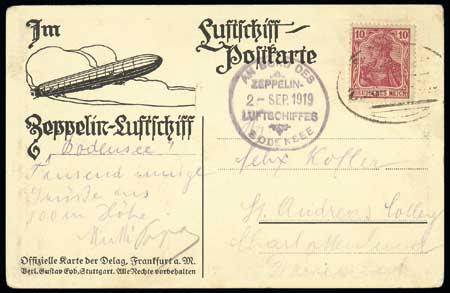 Im
Zeppelin-Luftschiff
"Bodensee"
Tausend innige
Grüße aus
800m Höhe!
Offizielle Karte der Delag, Frankfurt a. M.
Verl. Gustav Eyb, Stuttgart. Alle Rechte vorbehalten
Luftschiff-
Postkarte
AN BORD DES
ZEPPELIN-
2 - SEP. 1919
LUFTSCHIFFES
BODENSEE
10 10
DEUTSCHES REICH
Felix Kofler
St. Andreas Colleg
Charlottenlund